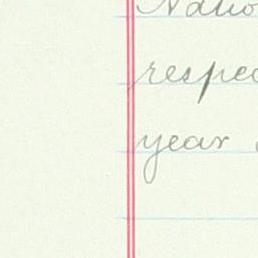 Natio
respec
year